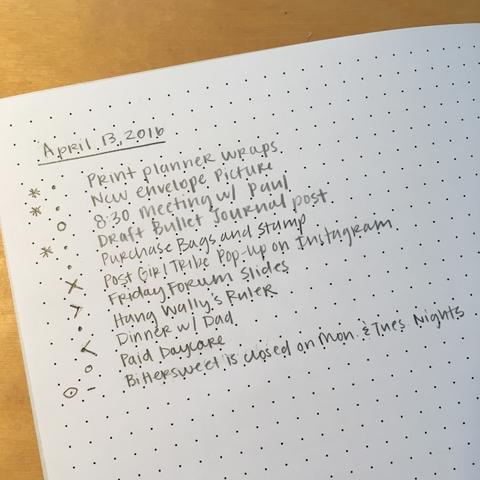 April 13, 2016
* • Print planner wraps
* • New envelope Picture
o 8:30 meeting w/ Paul
• Draft Bullet Journal post
* • Purchase Bags and stamp
x Post Girl Tribe Pop-up on Instagram
> Friday Forum Slides
• Hung Wally's Ruler
< Dinner w/ Dad
o Paid Daycare
⊙ – Bittersweet is closed on Mon. & Tues. Nights